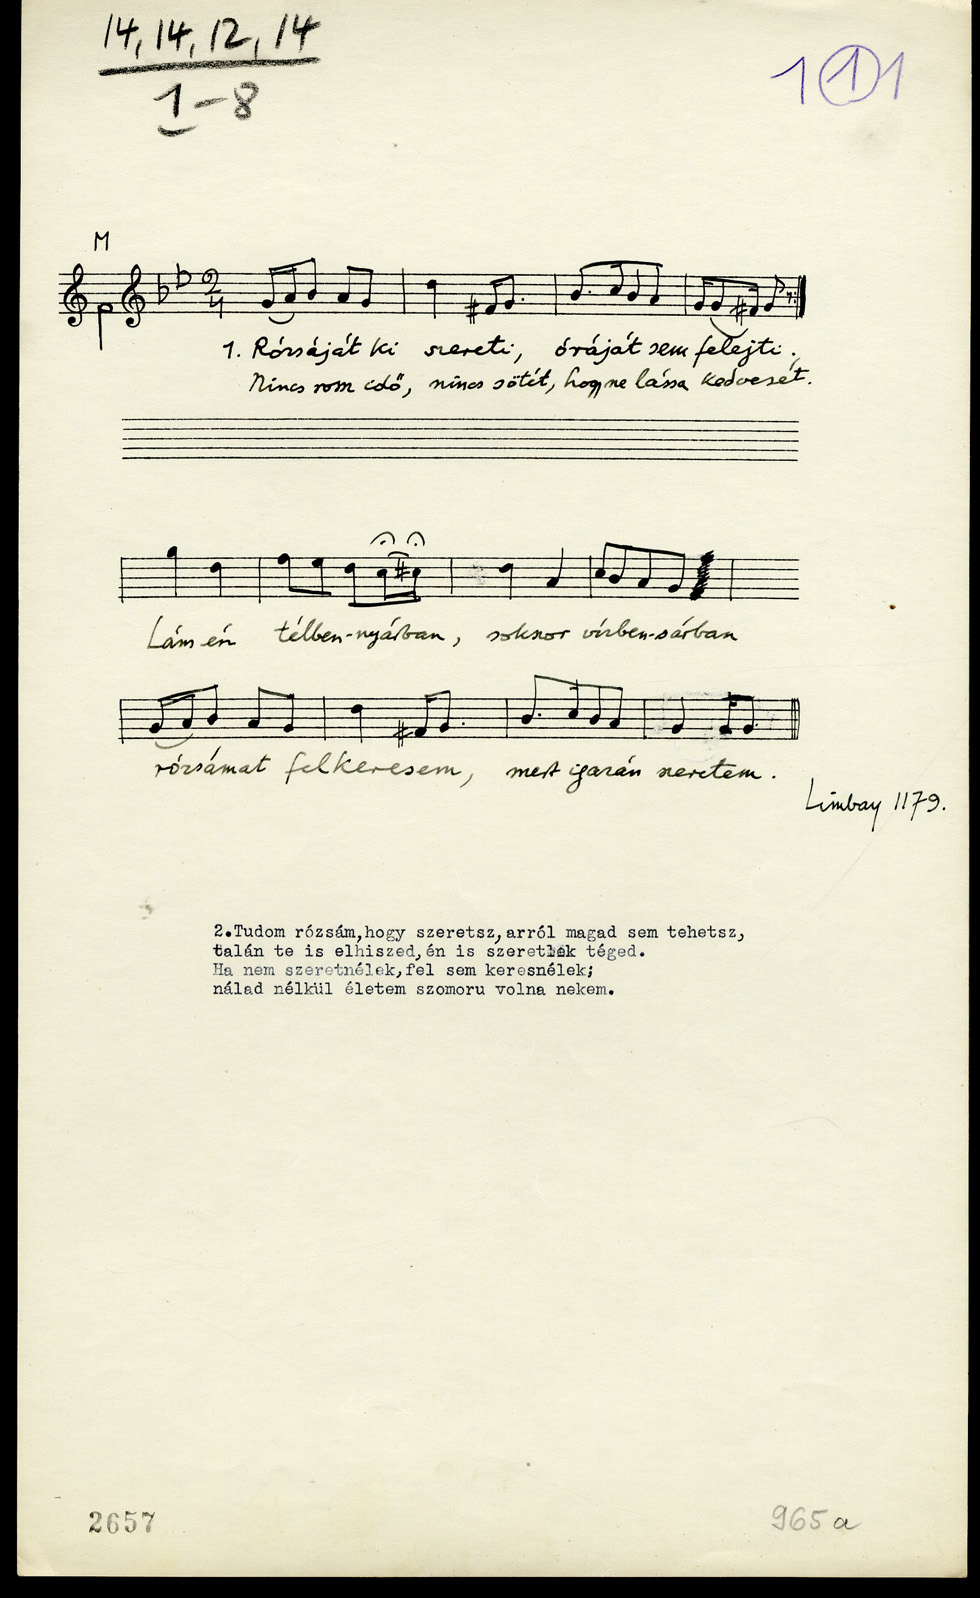 14, 14, 12, 14
1-8
1 1 1
M
1. Rózsáját ki szereti, óráját sem felejti.
Nincs rossz idő, nincs sötét, hogy ne lássa kedvesét.
Lám én télben-nyárban, sokszor vízben-sárban
rózsámat felkeresem, mert igazán szeretem.
Limbay 1179.
2.Tudom rózsám,hogy szeretsz,arról magad sem tehetsz,
talán te is elhiszed,én is szeretlek téged.
Ha nem szeretnélek,fel sem keresnélek;
nálad nélkül életem szomoru volna nekem.
2657
965a